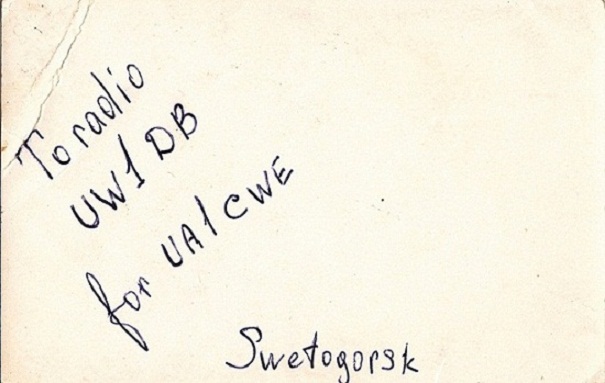 To radio
UW1DB
for UA1CWE
Swetogorsk